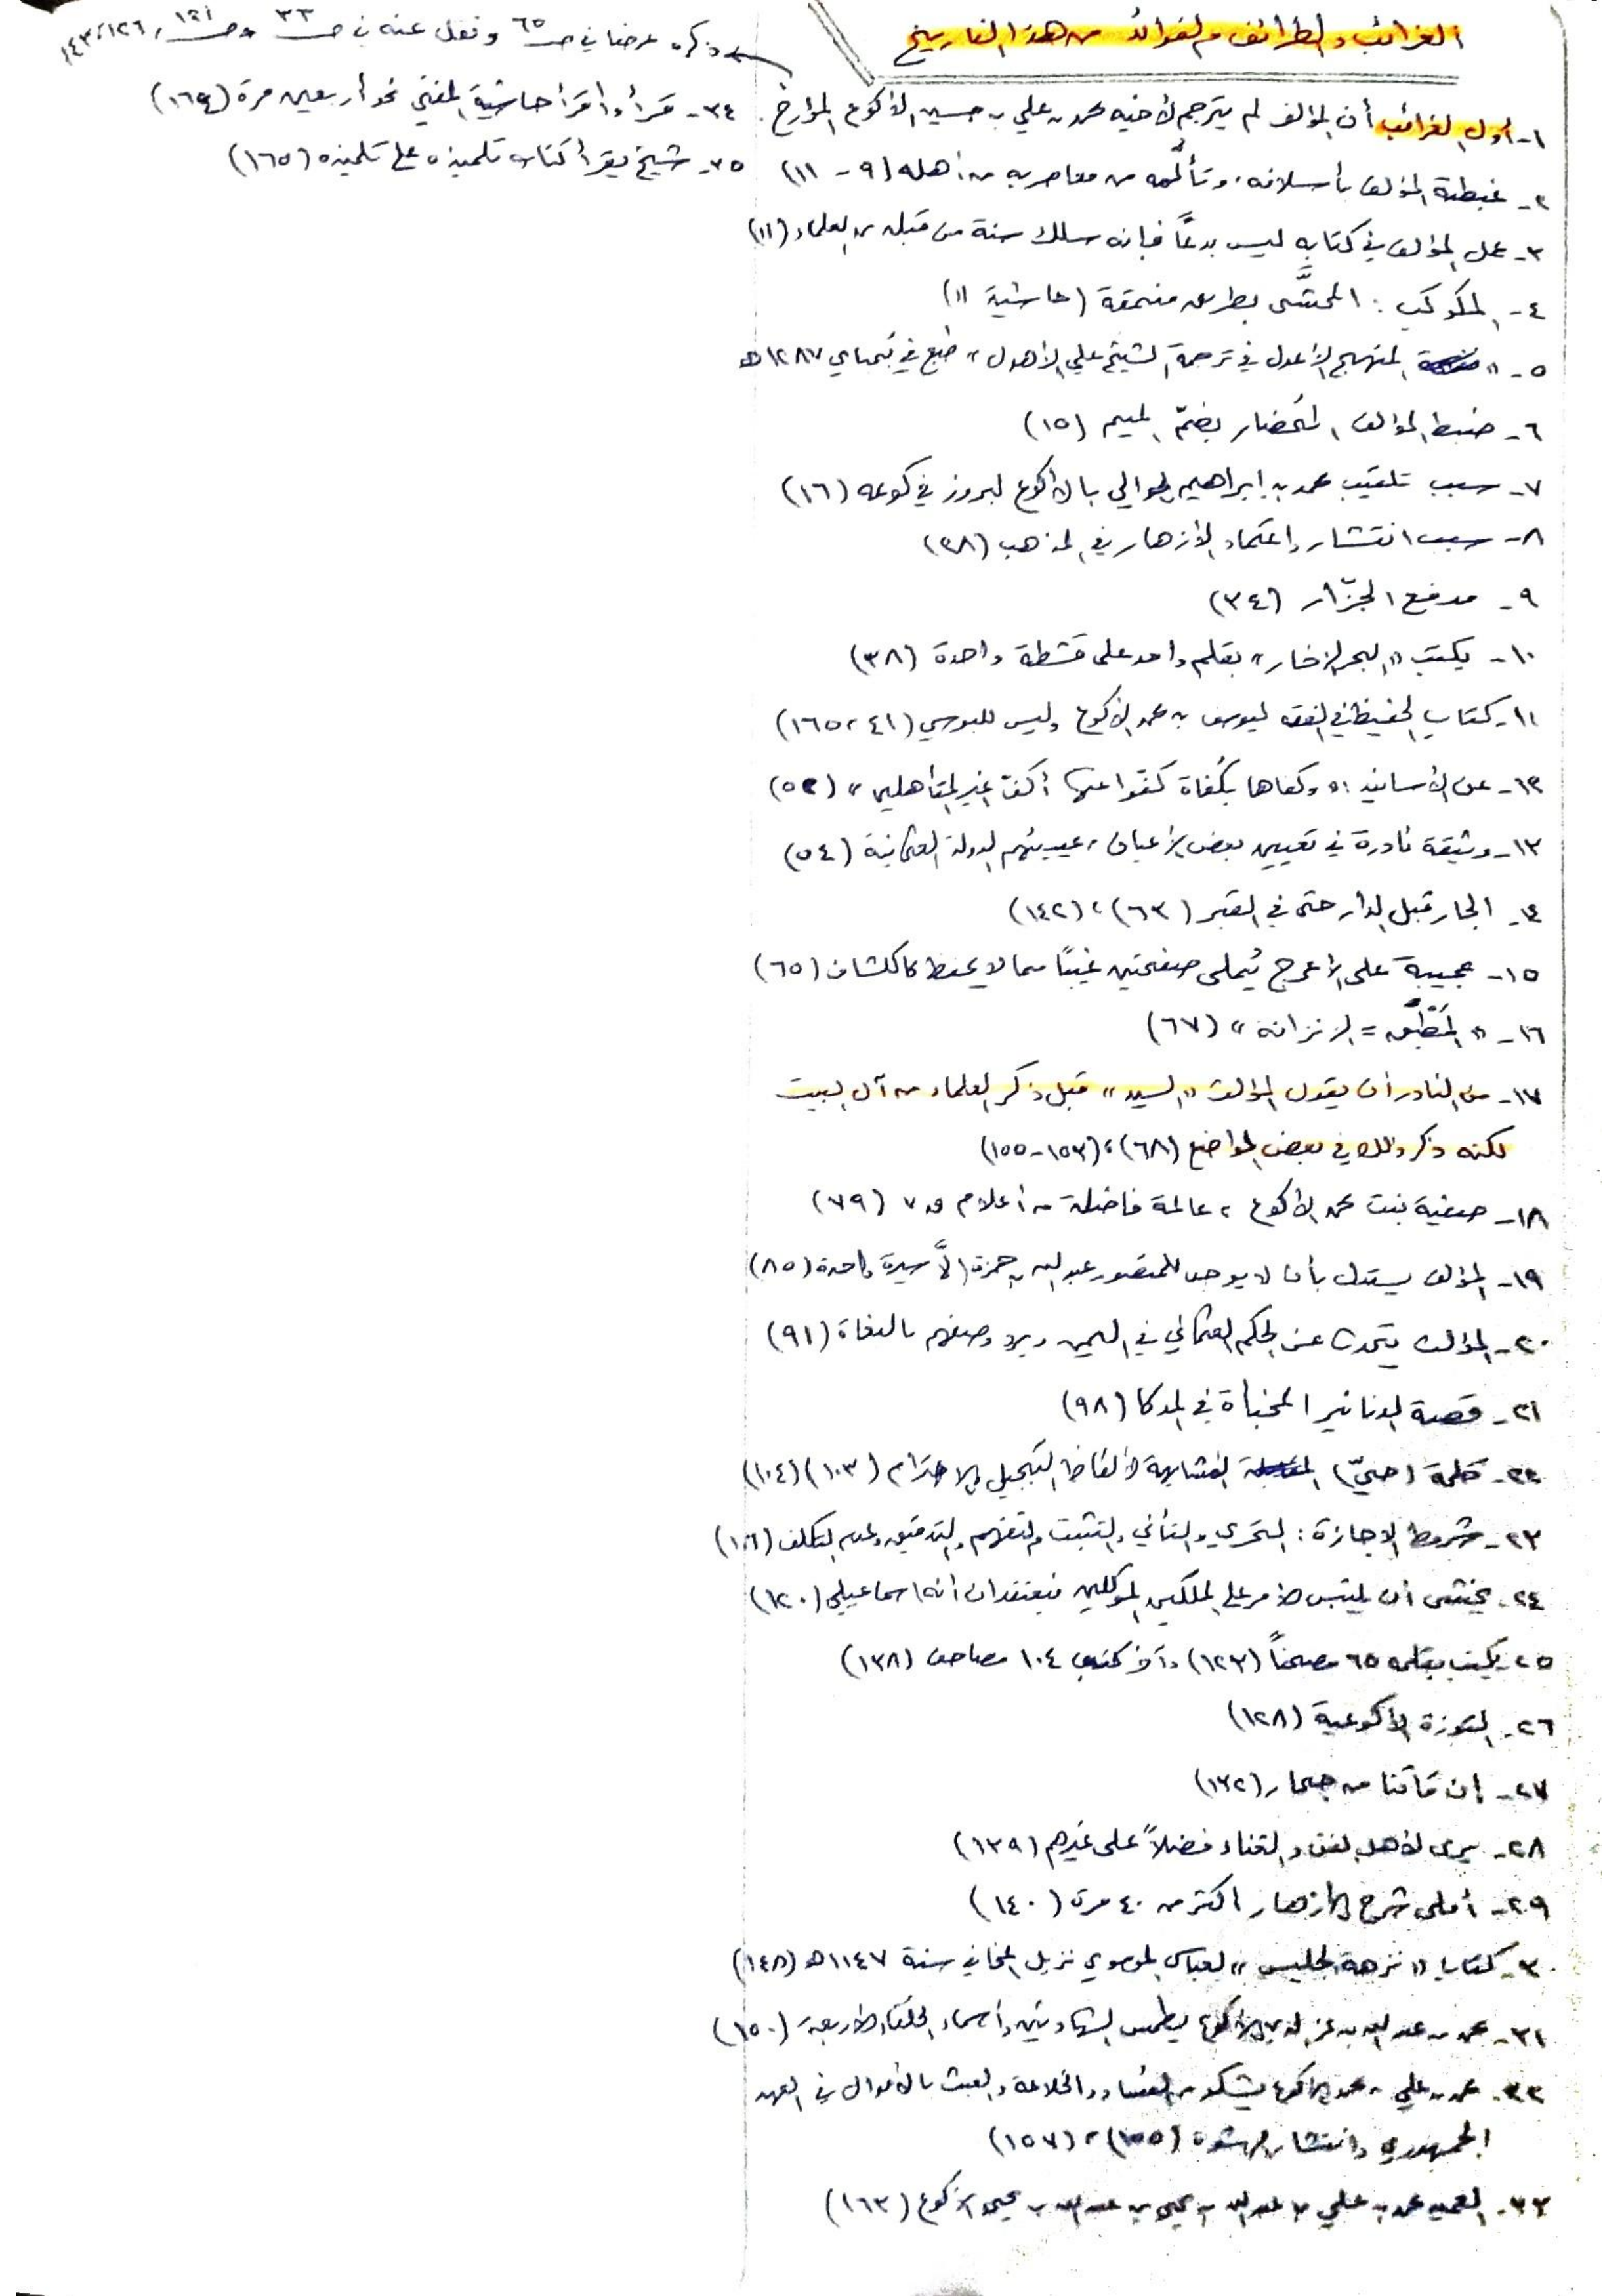 الغرائب والطرائف والفوائد من هذا التاريخ
١- أول الغرائب أن المؤلف لم يترجم لأخيه محمد بن علي بن حسين الأكوع المؤرخ.
← ذكره عرضا في صـ ٦٥ ونقل عنه في صـ ٣٣ و صـ ١٢١، ١٢٦، ١٤٣
٢- غبطة المؤلف بأسلافه، وتألمه من معاصريه من أهله (٩ - ١١)
٣- عمل المؤلف في كتابه ليس بدعًا فإنه سلك سنة من قبله من العلماء (١١)
٤- المكوكب: المحشَّى بطريقة منمقة (حاشية ١١)
٥- «المنهج الأعدل في ترجمة الشيخ علي الأهدل» طبع في بمباي ١٢٨٧ هـ
٦- ضبط المؤلف المُخضار بضمّ الميم (١٥)
٧- سبب تلقيب محمد بن إبراهيم الحوالي بالأكوع لبروز في كوعه (١٦)
٨- سبب انتشار واعتماد الأزهار في المذهب (٢٨)
٩- مدفع الجزّار (٣٤)
١٠- يكتب «البحر الزخار» بقلم واحد على قشطة واحدة (٣٨)
١١- كتاب الحفيظ في الفقه ليوسف بن محمد الأكوع وليس للبوسي (٤١، ١٦٥)
١٢- عن الأسانيد: «وكفاها بكُفاة كفّوا عنها أكفّ غير المتأهلين» (٥٢)
١٣- وثيقة نادرة في تعيين بعض الأعيان، عينتهم الدولة العثمانية (٥٤)
١٤- الجار قبل الدار حتى في القبر (٦٣)، (١٤٢)
١٥- عجيبة على الأعرج يُملي صفحتين غيبًا مما لا يحفظ كالكشاف (٦٥)
١٦- «المَطْبَق = الزنزانة» (٦٧)
١٧- من النادر أن يقول المؤلف «السيد» قبل ذكر العلماء من آل البيت
لكنه ذكر ذلك في بعض المواضع (٦٨)، (١٥٣-١٥٥)
١٨- صفية بنت محمد الأكوع، عالمة فاضلة من أعلام ق ٧ (٧٩)
١٩- المؤلف يستدل بأن لا يوجد للمنصور عبد الله بن حمزة إلَّا سيرة واحدة (٨٥)
٢٠- المؤلف يتحدث عن الحكم العثماني في اليمن ويرد وصفهم بالبغاة (٩١)
٢١- قصة الدنانير المخبأة في المدكا (٩٨)
٢٢- كلمة (حيّ) المشابهة لألفاظ التبجيل والاحترام (١٠٣) (١٠٤)
٢٣- شروط الإجازة: التحري والتأني والتثبت والتفهم والتدقيق وعدم التكلف (١٠٦)
٢٤- يخشى أن يلتبس الأمر على الملكين الموكلين فيعتقدان أنه إسماعيلي (١٢٠)
٢٥- يكتب بقلمه ٦٥ مصحفًا (١٢٣) وآخر كتب ١٠٤ مصاحف (١٣٨)
٢٦- الأكوعية (١٢٨)
٢٧- إن فاتنا من (١٣٢)
٢٨- يرى لأهل الفن والغناء فضلاً على غيرهم (١٣٩)
٢٩- أملى شرح الأزهار أكثر من ٤٠ مرة (١٤٠)
٣٠- كتاب «نزهة الجليس» لعباس الموسوي نزيل المخا في سنة ١١٤٧ هـ (١٤٨)
٣١- محمد بن عبد الله بن عز الدين الأكوع يطمس الشهادتين وأسماء الخلفاء الأربعة (١٥٠)
٣٢- محمد بن علي بن محمد الأكوع يشكو من الفساد والخلاعة والعبث بالأموال في العهد
الجمهوري وانتشار الرشوة (١٥٥)، (١٥٧)
٣٣- العميد محمد بن علي بن عبد الله بن يحيى بن عبد الله بن يحيى الأكوع (١٦٣)
٣٤- قرأ وأقرأ حاشية المغني نحو أربعين مرة (١٦٤)
٣٥- شيخ يقرأ كتاب تلميذه على تلميذه (١٦٥)